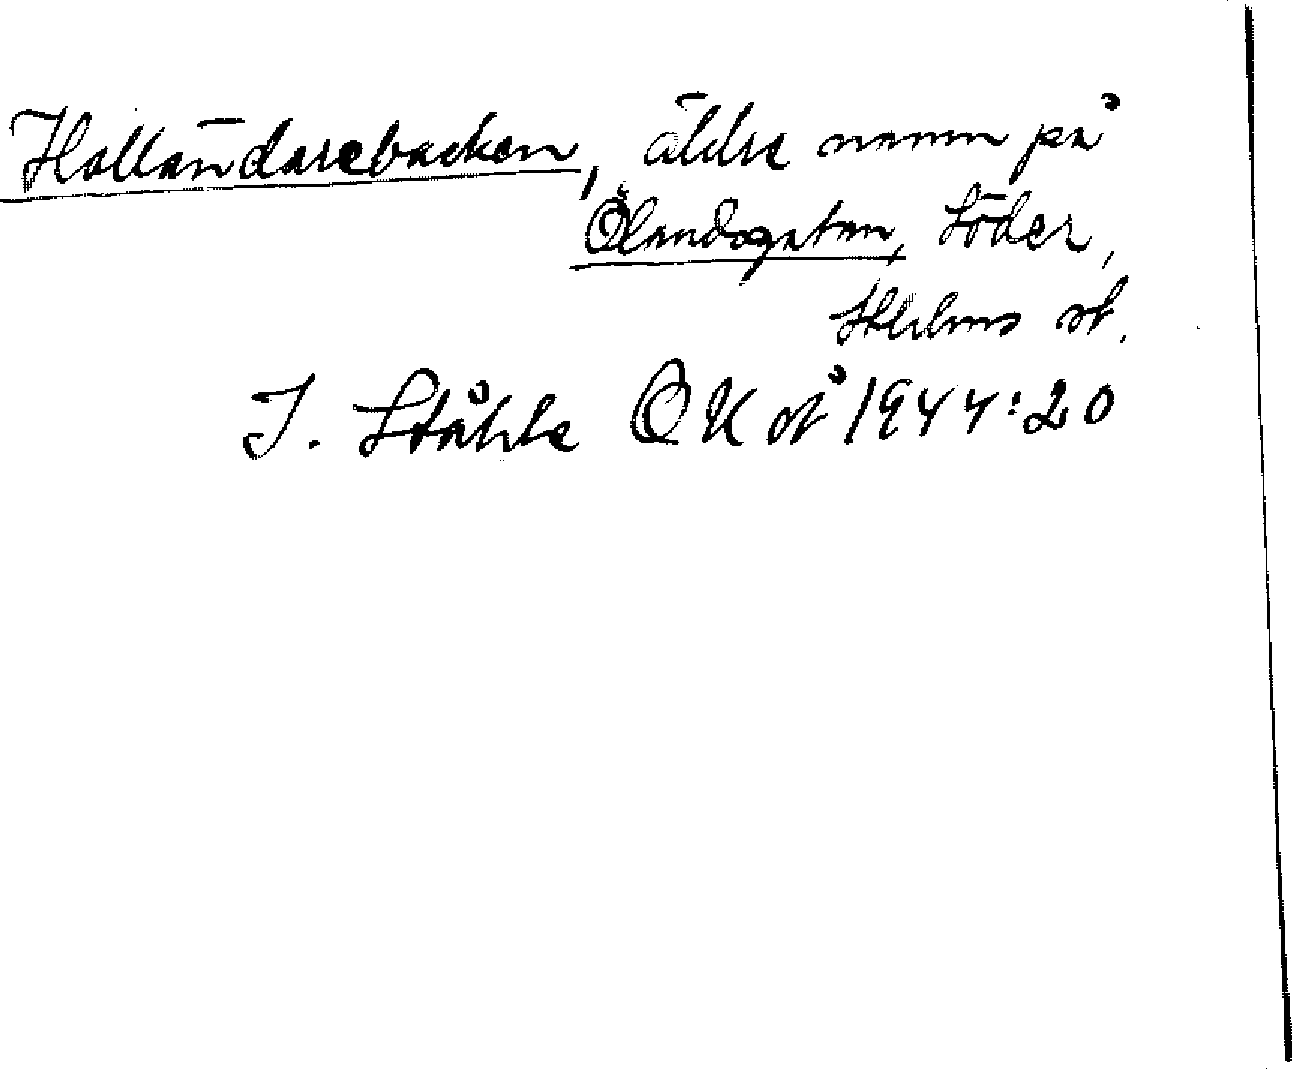 Holländarebacken, äldre namn på
Ölandsgatan, Söder,
Sthlms st.
I. Ståhle OKst 1944:20